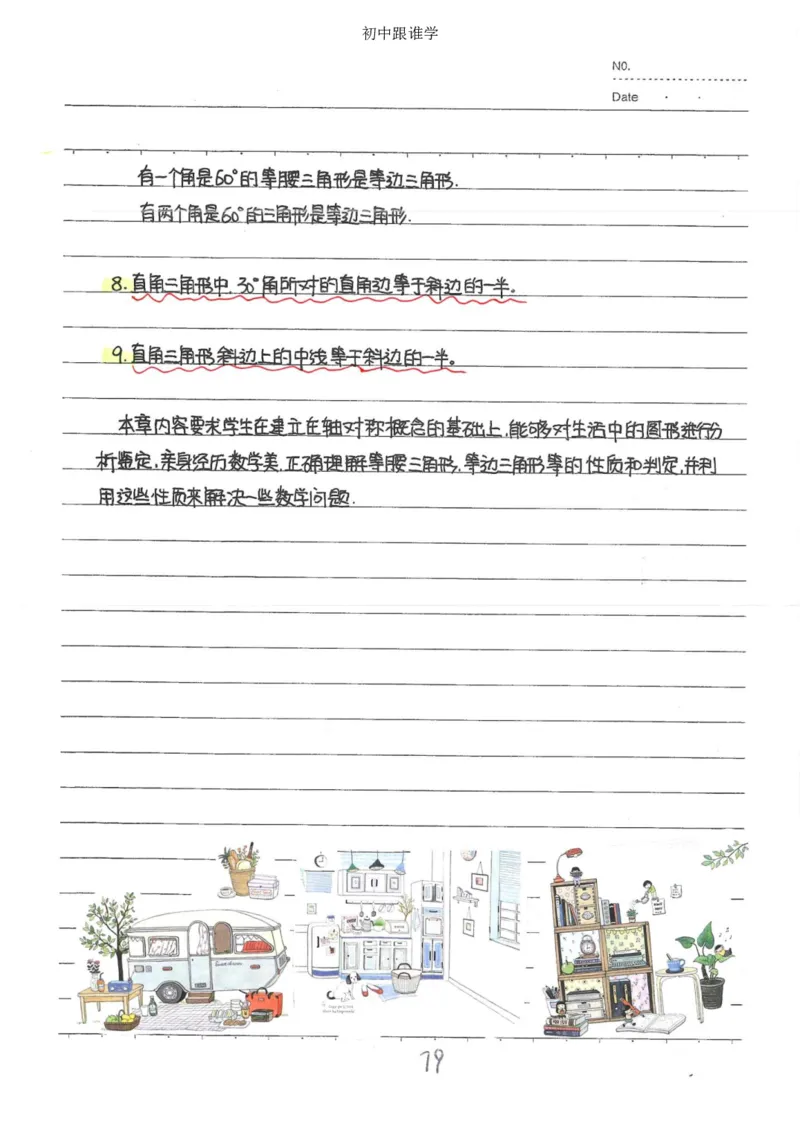 初中跟谁学
NO.
Date · ·
有一个角是60°的等腰三角形是等边三角形.
有两个角是60°的三角形是等边三角形.
8.直角三角形中,30°角所对的直角边等于斜边的一半。
9.直角三角形斜边上的中线等于斜边的一半。
本章内容要求学生在建立在轴对称概念的基础上,能够对生活中的图形进行分
析鉴定,亲身经历数学美,正确理解等腰三角形,等边三角形等的性质和判定,并利
用这些性质来解决一些数学问题.
19